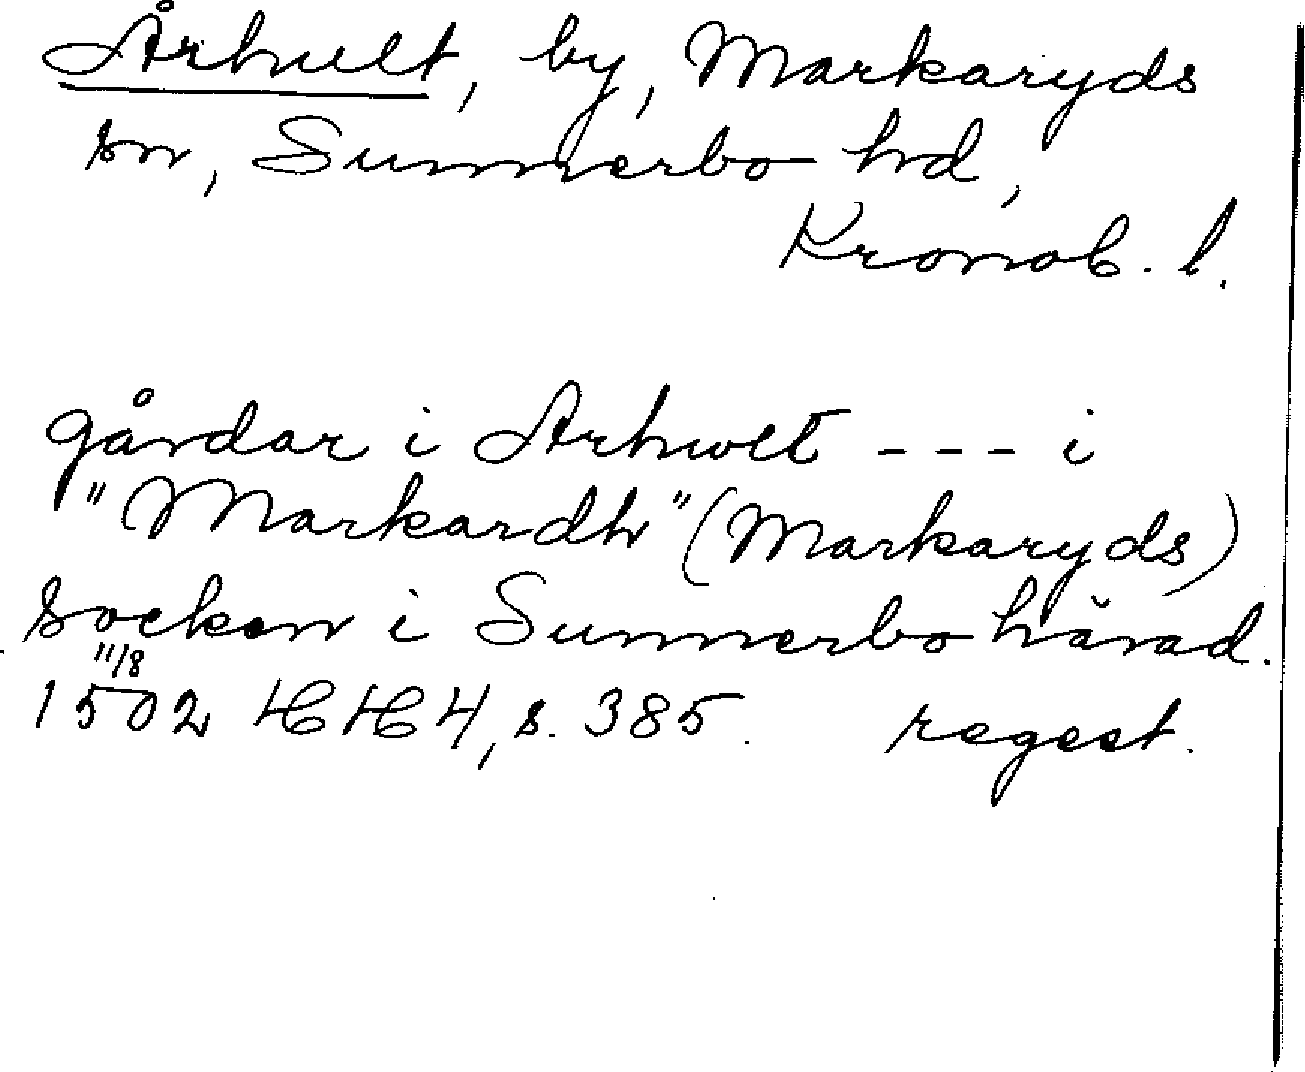 Århult, by, Markaryds
sn, Sunnerbo hd,
Kronob. l.
gårdar i Arhwlt --- i
"Markardh" (Markaryds)
socken i Sunnerbo härad.
11/8
1502 HH 4, s. 385. regest.